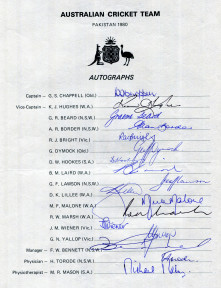 AUSTRALIAN CRICKET TEAM
PAKISTAN 1980
AUTOGRAPHS
Captain - G. S. CHAPPELL (Qld.)
Vice-Captain - K. J. HUGHES (W.A.)
G. R. BEARD (N.S.W.) Graeme Beard
A. R. BORDER (N.S.W.) Allan Border
R. J. BRIGHT (Vic.)
G. DYMOCK (Qld.)
D. W. HOOKES (S.A.)
B. M. LAIRD (W.A.)
G. F. LAWSON (N.S.W.)
D. K. LILLEE (W.A.)
M. F. MALONE (W.A.) Mick Malone
R. W. MARSH (W.A.)
J. M. WIENER (Vic.)
G. N. YALLOP (Vic.)
Manager - F. W. BENNETT (N.S.W.)
Physician - H. TORODE (N.S.W.)
Physiotherapist - M. R. MASON (S.A.)